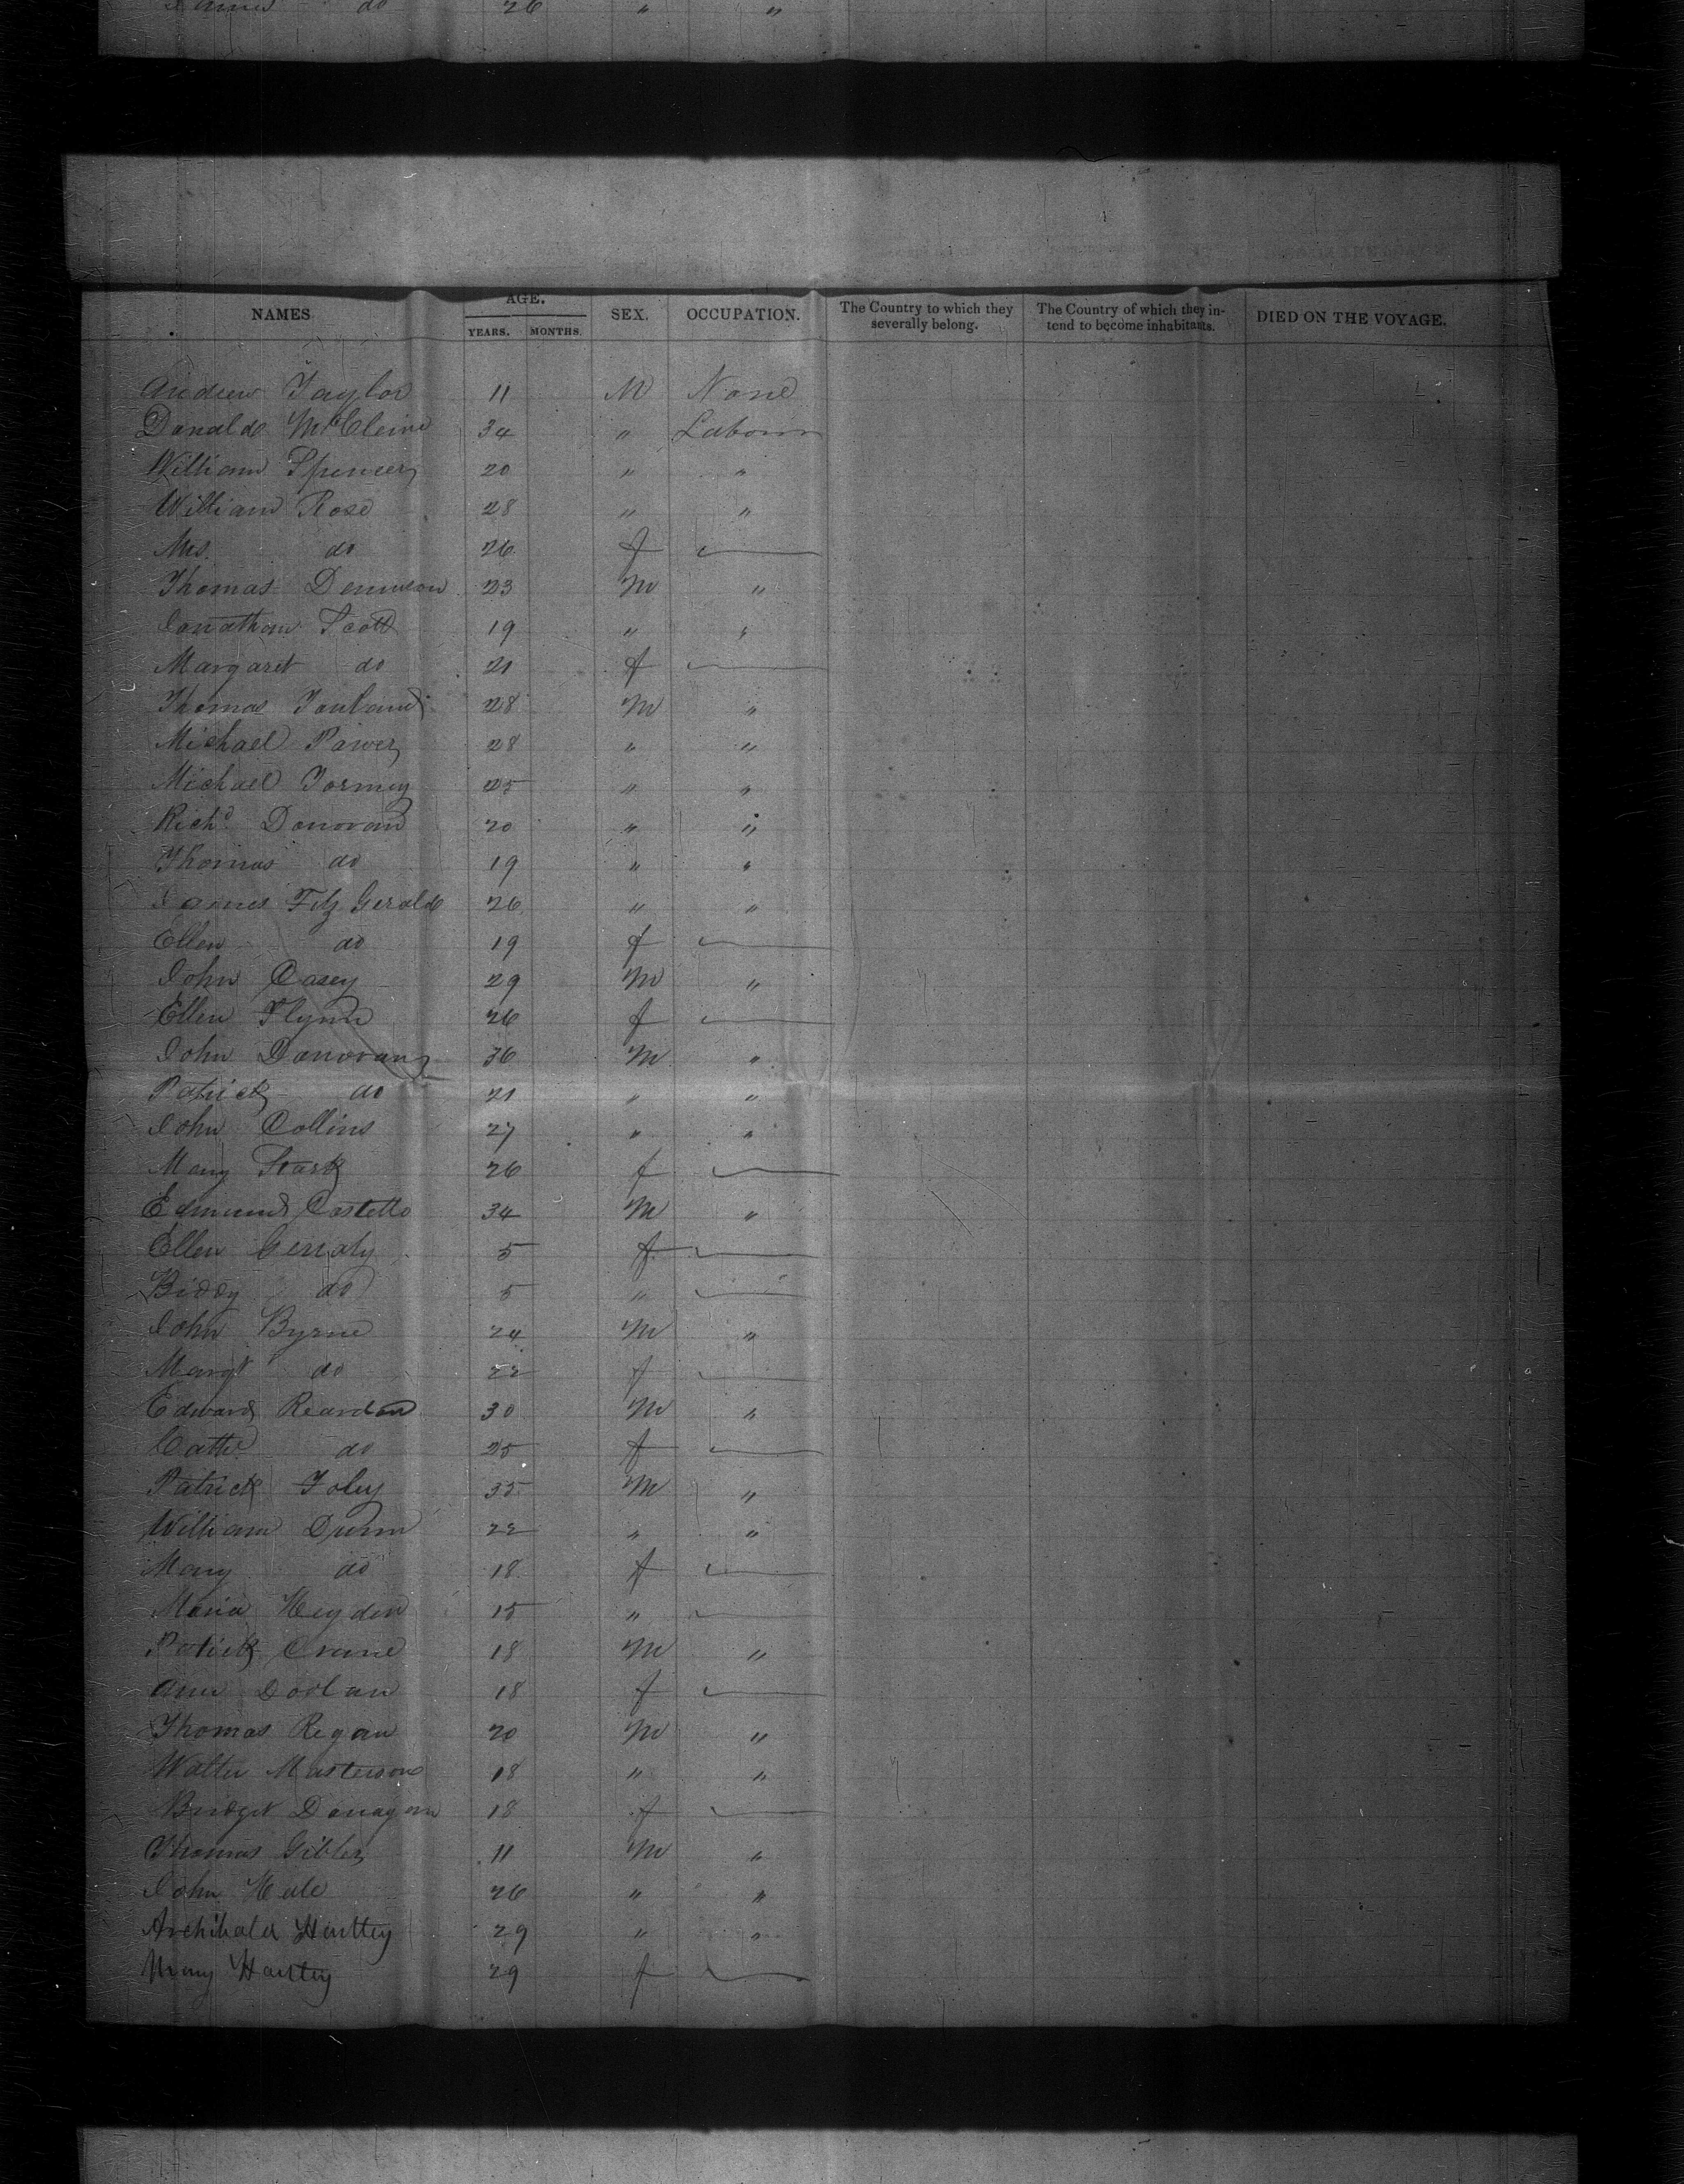 James do 26 " "
NAMES AGE. YEARS. MONTHS. SEX. OCCUPATION. The Country to which they severally belong. The Country of which they intend to become inhabitants. DIED ON THE VOYAGE.
Andrew Taylor 11 M None
Donald 34 " Labour
William Spencer 20 " "
William Rose 28 " "
Mrs. do 26 f
Thomas Dennison 23 M "
Jonathan Scott 19 " "
Margaret do 21 f
Thomas 28 M "
Michael Power 28 " "
Michael Tormey 25 " "
Richd Donovan 20 " "
Thomas do 19 " "
James Fitz Gerald 26 " "
Ellen do 19 f
John Casey 29 M "
Ellen Flynn 26 f
John Donovan 36 M "
Patrick do 21 " "
John Collins 27 " "
Mary Stark 26 f
Edmund Costello 34 M "
Ellen 5 f
Biddy do 5 "
John Byrne 24 M "
Margt do 22 f
Edward Reardon 30 M "
Cathe do 25 f
Patrick Foley 35 M "
William Dunn 22 " "
Mary do 18 f
Maria Heyden 15 "
Patrick Crane 18 M "
Ann Doolan 18 f
Thomas Regan 20 M "
Walter Masterson 18 " "
Bridget Donagan 18 f
Thomas 11 M "
John Hale 26 " "
Archibald 29 " "
Mary 29 f